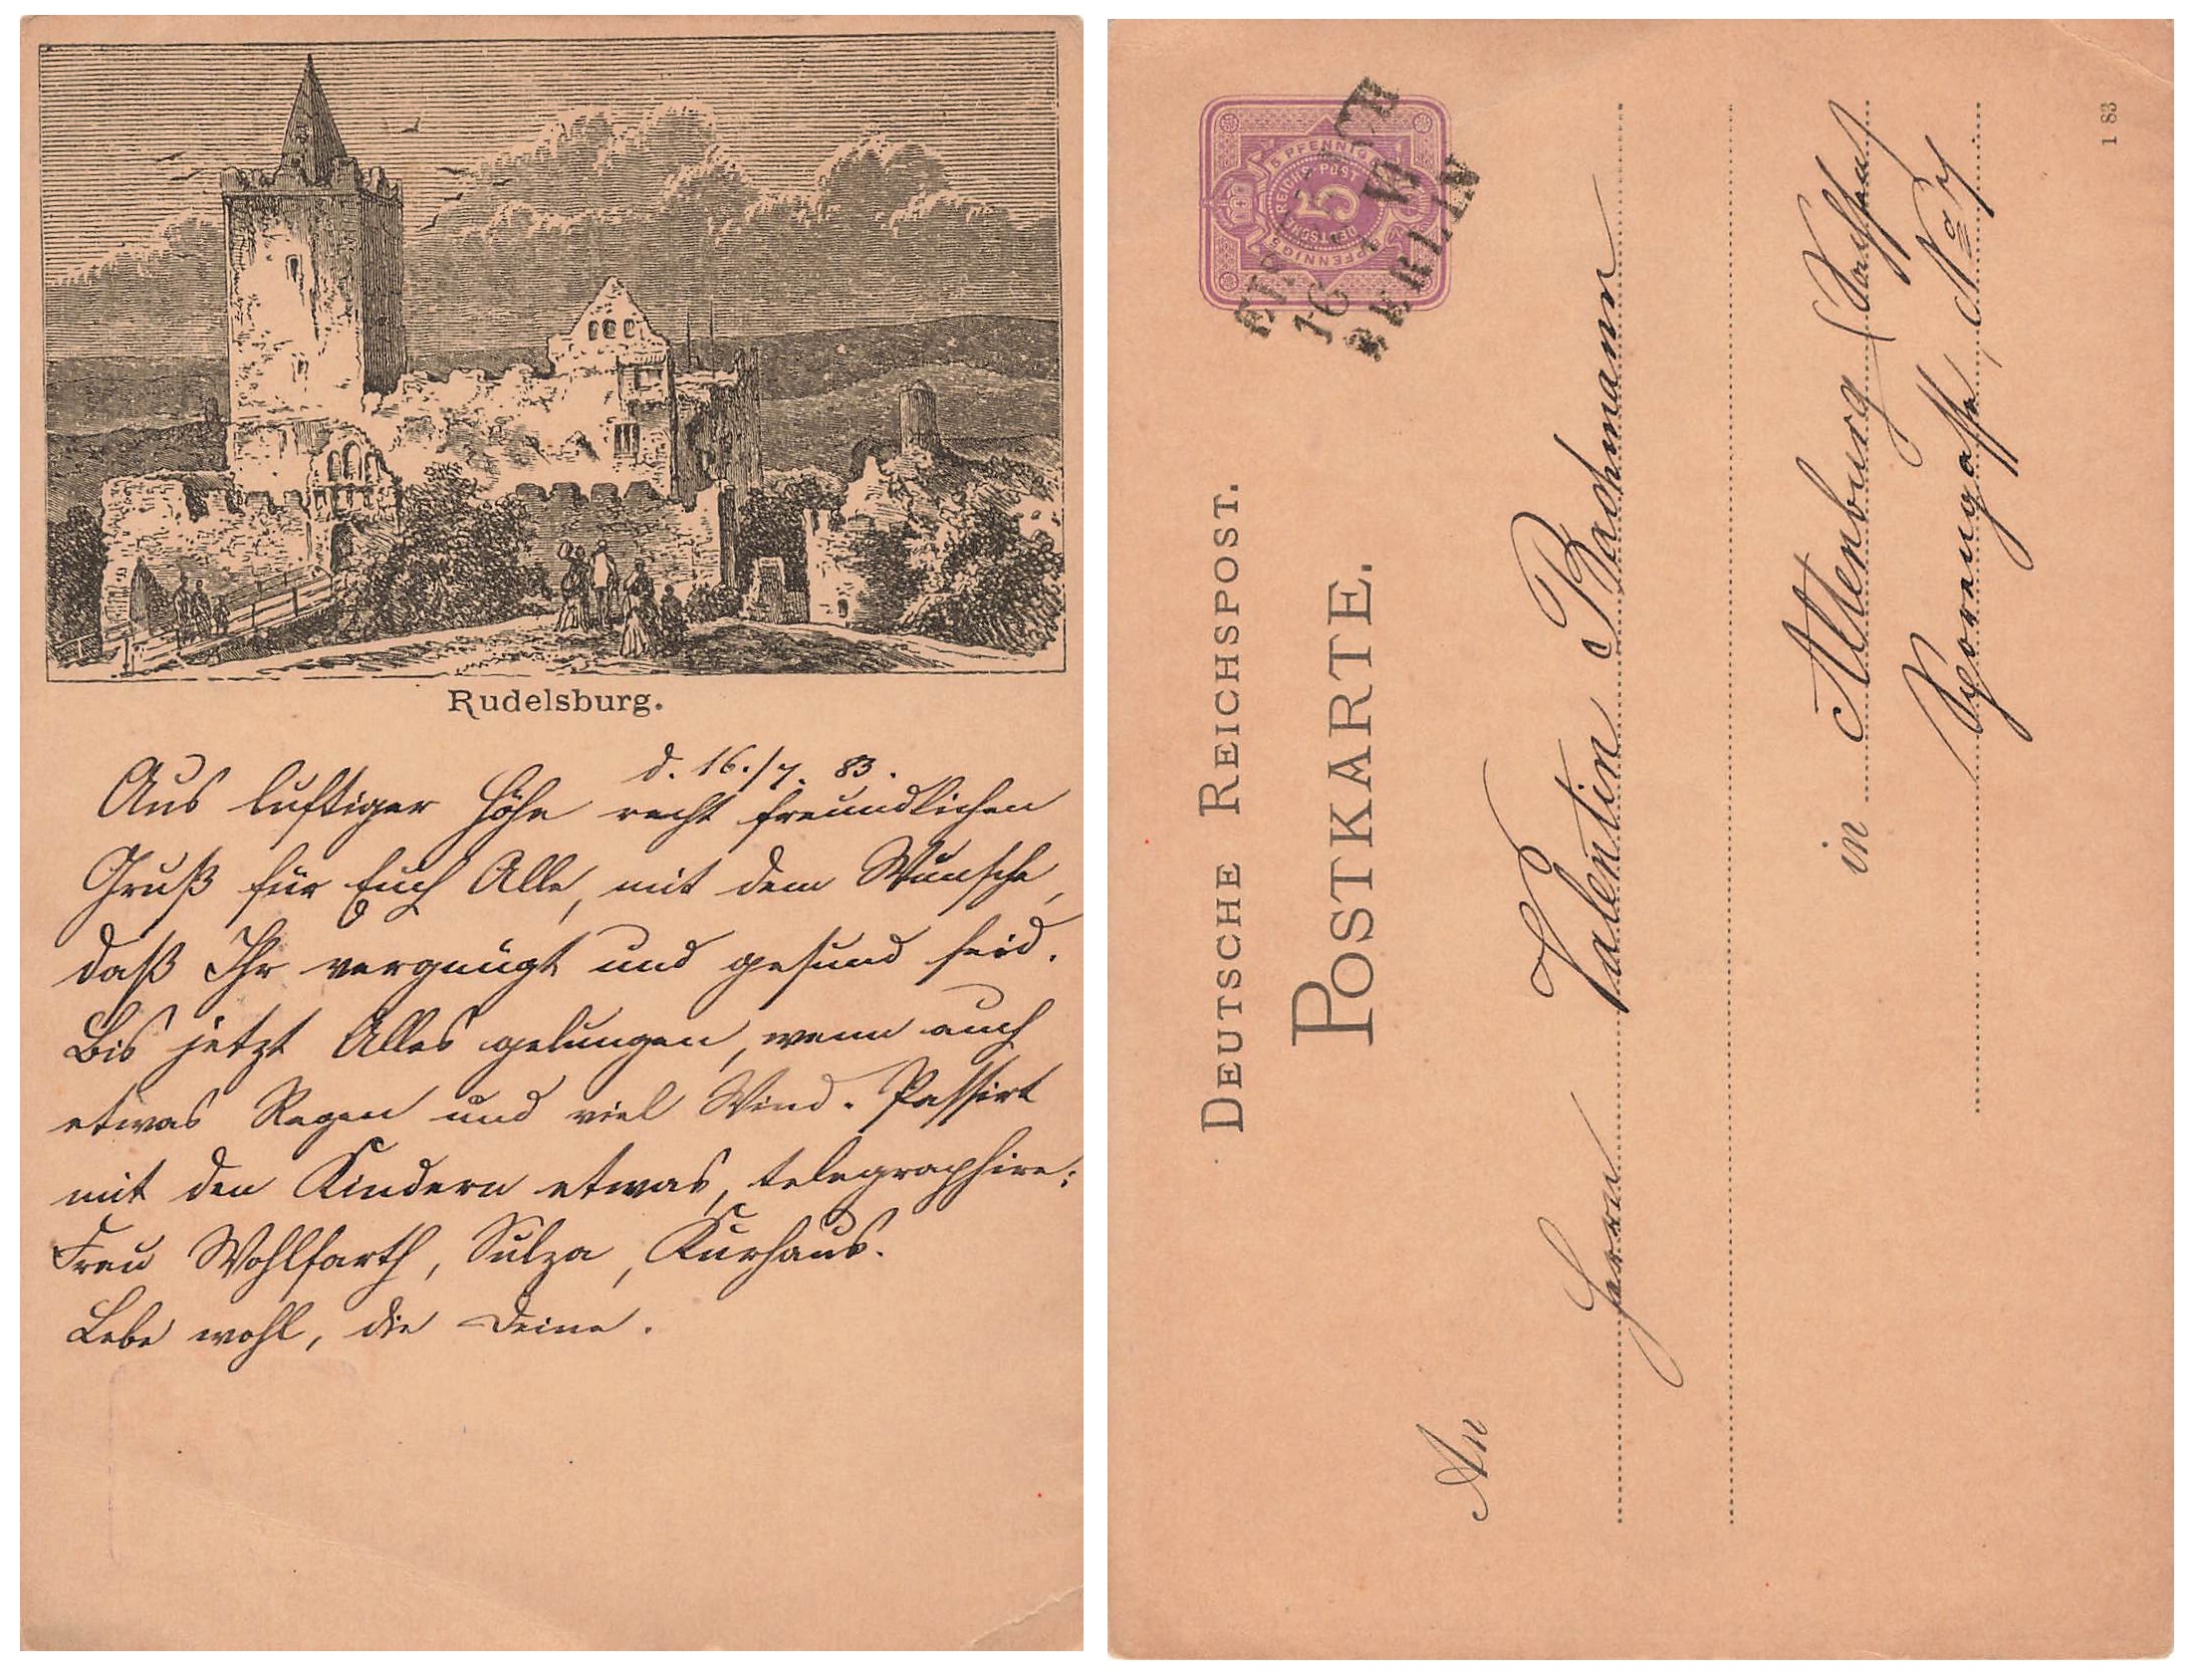 Rudelsburg.
d. 16./7. 83.
Aus luftiger Höhe recht freundlichen
Gruß für Euch Alle, mit dem Wunsche,
daß Ihr vergnügt und gesund seid.
Bis jetzt Alles gelungen, wenn auch
etwas Regen und viel Wind. Passirt
mit den Kindern etwas, telegraphire:
Frau Wohlfarth, Sulza, Kurhaus.
Lebe wohl, die Deine.
DEUTSCHE REICHSPOST.
POSTKARTE.
5 PFENNIG 5 PFENNIG
DEUTSCHE REICHS-POST
5
16
BERLIN
An
Herrn Valentin Bachmann
in Altenburg (Sachsen)
Sporengasse, No
1 83